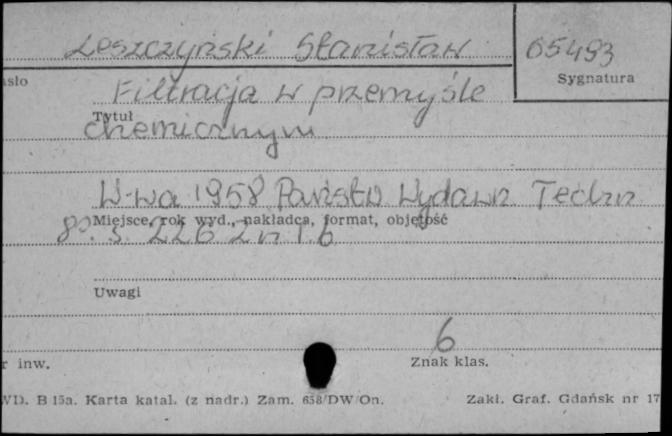 Leszczyński Stanisław 65493
asło Sygnatura
Filtracja w przemyśle
Tytuł
chemicznym
W-wa 1958 Państw Wydawn Techn
Miejsce, rok wyd., nakładca, format, objętość
8º. s. 226 2 nl. 6
Uwagi
6
r inw. Znak klas.
WD. B 15a. Karta katal. (z nadr.) Zam. 658/DW/On. Zakł. Graf. Gdańsk nr 17